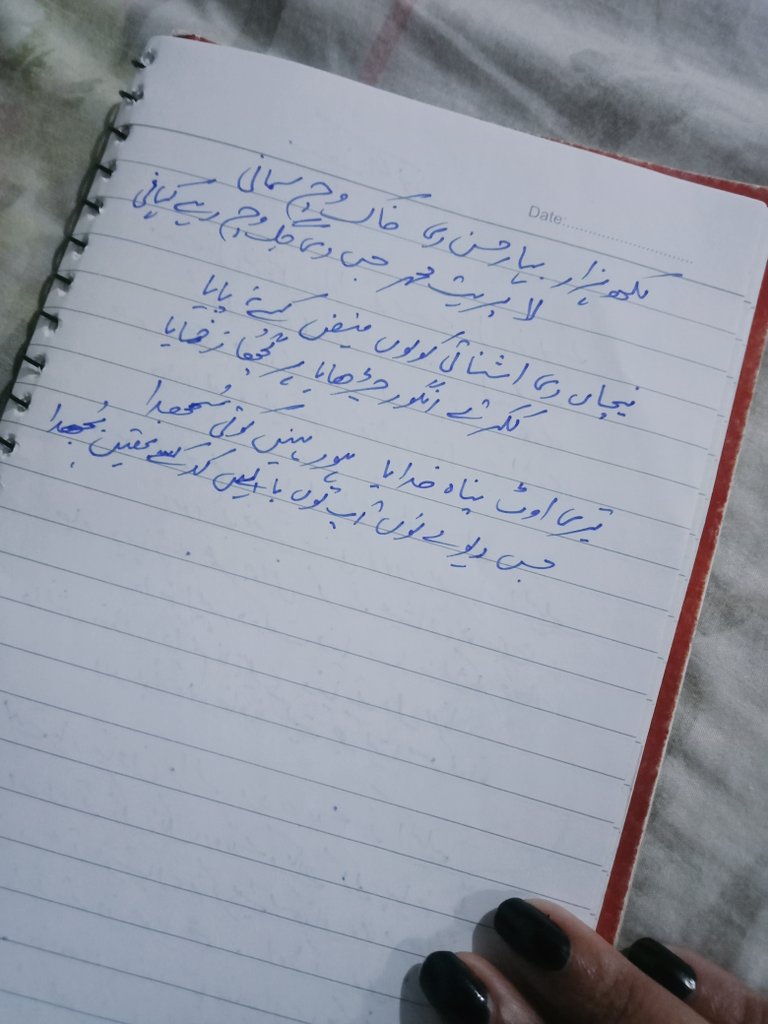 Date:
لکھ ہزار بہار حسن دی خاک وچ سمانی
لا پریت محمد جس دی جگ وچ رہے کہانی
نیچاں دی اشنائی کولوں فیض کسے نہ پایا
ککر تے انگور چڑھایا ہر گچھا زخمایا
تیری اوٹ پناہ خدایا ہور نہیں کوئی سُجھدا
جس دیوے نوں آپ توں بالیں کد کسے تھیں بُجھدا